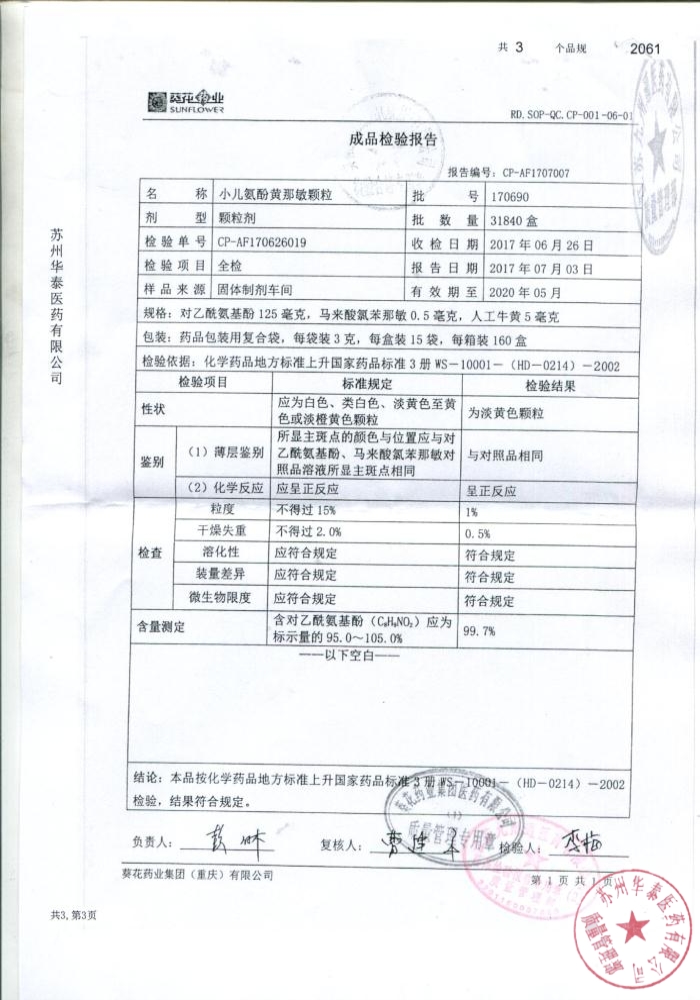 共 3 个品规 2061
葵花药业
SUNFLOWER
RD.SOP-QC.CP-001-06-01
成品检验报告
报告编号: CP-AF1707007
名 称 小儿氨酚黄那敏颗粒 批 号 170690
剂 型 颗粒剂 批 数 量 31840 盒
检验单号 CP-AF170626019 收检日期 2017 年 06 月 26 日
检验项目 全检 报告日期 2017 年 07 月 03 日
样品来源 固体制剂车间 有效期至 2020 年 05 月
规格: 对乙酰氨基酚 125 毫克, 马来酸氯苯那敏 0.5 毫克, 人工牛黄 5 毫克
包装: 药品包装用复合袋, 每袋装 3 克, 每盒装 15 袋, 每箱装 160 盒
检验依据: 化学药品地方标准上升国家药品标准 3 册 WS-10001-(HD-0214)-2002
检验项目 标准规定 检验结果
性状 应为白色、类白色、淡黄色至黄
色或淡橙黄色颗粒 为淡黄色颗粒
鉴别 (1) 薄层鉴别 所显主斑点的颜色与位置应与对
乙酰氨基酚、马来酸氯苯那敏对
照品溶液所显主斑点相同 与对照品相同
(2) 化学反应 应呈正反应 呈正反应
检查 粒度 不得过 15% 1%
干燥失重 不得过 2.0% 0.5%
溶化性 应符合规定 符合规定
装量差异 应符合规定 符合规定
微生物限度 应符合规定 符合规定
含量测定 含对乙酰氨基酚 (C₈H₉NO₂) 应为
标示量的 95.0~105.0% 99.7%
——以下空白——
结论: 本品按化学药品地方标准上升国家药品标准 3 册 WS-10001-(HD-0214)-2002
检验, 结果符合规定。
负责人: 复核人: 检验人:
葵花药业集团(重庆)有限公司
第 1 页 共 1 页
共3, 第3页
苏州华泰医药有限公司
葵花药业集团医药有限公司
(1)
质量管理专用章
苏州华泰医药有限公司
质量管理专用章